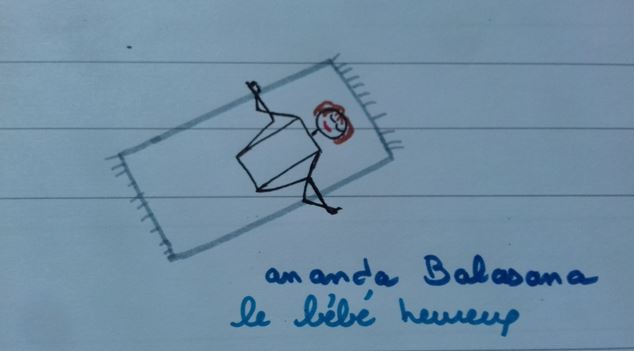 ananda Balasana
le bébé heureux